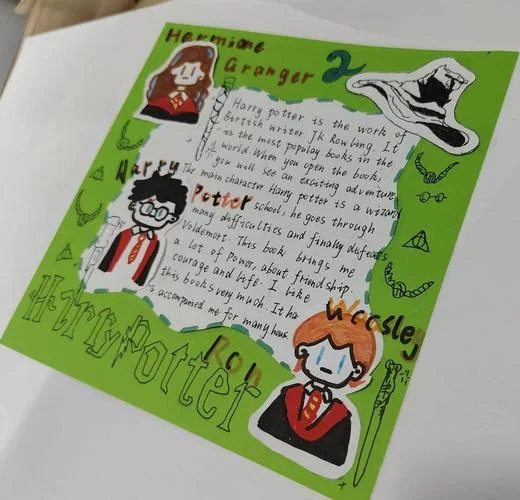 Hermione
Granger
2
Harry potter is the work of
British writer JK Rowling. It
is the most populay books in the
world. When you open the book.
you will see an exciting adventure
The main character Harry potter is a wizard
school, he goes through
many difficulties and finally defeats
Voldemort. This book brings me
a lot of Power, about friendship.
courage and life. I like
this books very much. It ha
accompanied me for many hous
Harry
Potter
Weasley
Ron
Harry Potter